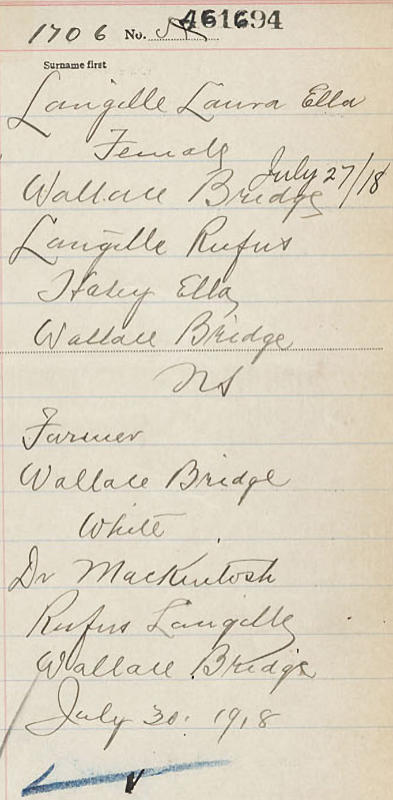 1706 No. 461694
Surname first
Langille Laura Ella
Female
Wallace Bridge July 27/18
Langille Rufus
Haley Ella
Wallace Bridge
NS
Farmer
Wallace Bridge
White
Dr MacKintosh
Rufus Langille
Wallace Bridge
July 30. 1918